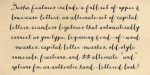 Dasha features include a full set of upper &
lowercase letters, an alternate set of capital
letters, seamless ligatures that automatically
connect as you type, beginning & end-of-word
swashes, capital letter swashes, old-style
numerals, fractions, and 39 alternate
options for an authentic hand-lettered look!